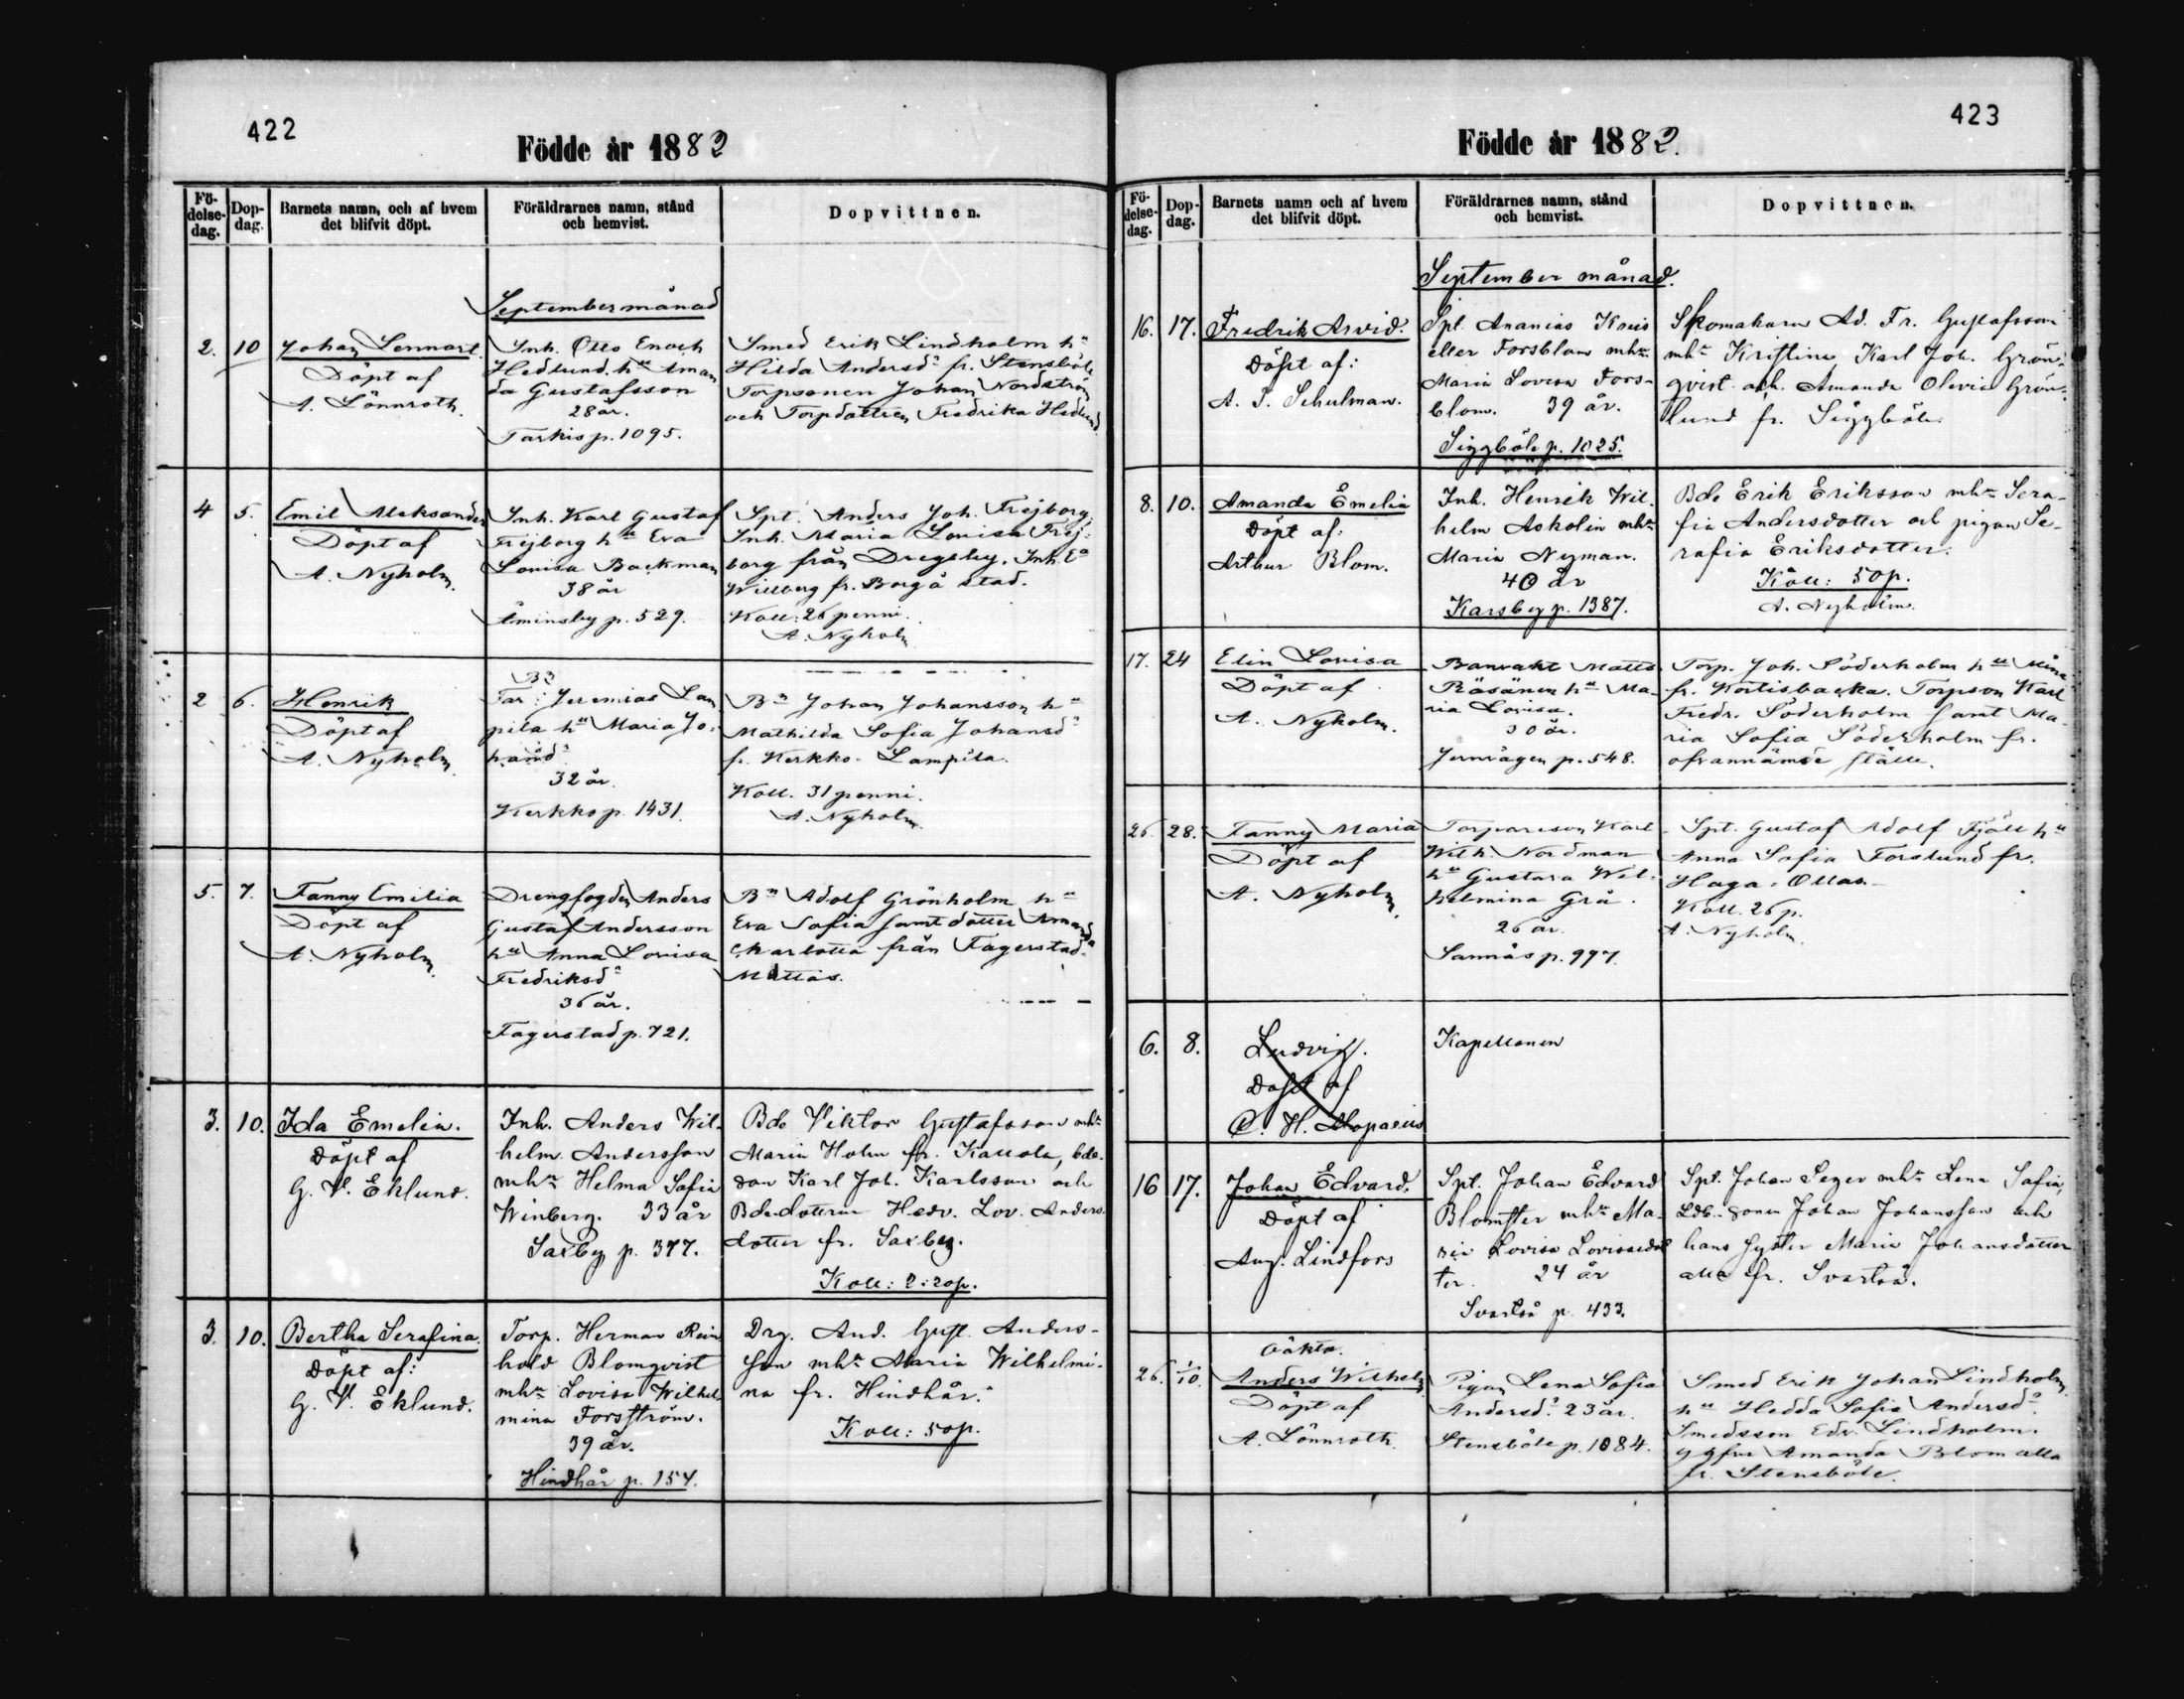 422
Födde år 1882
Fö-
delse-
dag.
Dop-
dag.
Barnets namn, och af hvem
det blifvit döpt.
Föräldrarnes namn, stånd
och hemvist.
Dopvittnen.
September månad
2. 10
Johan Lennart
Döpt af
A. Lönnroth.
Inh. Otto Enoch
Hedlund. hu Aman
da Gustafsson
28 år.
Tarkis p. 1095.
Smed Erik Lindholm hu
Hilda Andersd. fr. Stensböle
Torpsonen Johan Nordström
och Torpdottren Fredrika Hedlund
4 5.
Emil Aleksander
Döpt af
A. Nyholm.
Inh. Karl Gustaf
Frejborg hu Eva
Lovisa Backman
38 år
Åminsby p. 529.
Spt. Anders Joh. Frejborg,
Inh. Maria Lovisa Frej-
borg från Dregsby. Inh. Ea
Willberg fr. Borgå stad.
Koll: 26 penni.
A. Nyholm
2 6.
Henrik
Döpt af
A. Nyholm.
Jeremias Lam
pila hu Maria Jo-
hansd.
32 år.
Kerkko p. 1431.
Bn Johan Johansson hu
Mathilda Sofia Johansd.
fr. Kerkko-Lampila.
Koll. 31 penni.
A. Nyholm.
5. 7.
Fanny Emilia
Döpt af
A. Nyholm.
Drengfogden Anders
Gustaf Andersson
hu Anna Lovisa
Fredriksd.
36 år.
Fagerstad p. 721.
Bn Adolf Grönholm hu
Eva Sofia samt dotter Amanda
Charlotta från Fagerstad-
Mattas.
3. 10.
Ida Emelia.
Döpt af
G. V. Eklund.
Inh. Anders Wil-
helm Andersson
mhu Helma Sofia
Winberg. 33 år
Saxby p. 377.
Bde Viktor Gustafsson mhu
Maria Holm fr. Kallola, bde-
son Karl Joh. Karlsson och
Bde-dottern Hedv. Lov. Anders-
dotter fr. Saxby.
Koll: 2:20p.
3. 10.
Bertha Serafina.
Döpt af:
G. V. Eklund.
Torp. Herman Rein
hold Blomqvist
mhu Lovisa Wilhel-
mina Forsström.
39 år.
Hindhår p. 154.
Drg. And. Gust. Anders-
son mhu Maria Wilhelmi-
na fr. Hindhår.
Koll: 50p.
423
Födde år 1882.
Fö-
delse-
dag.
Dop-
dag.
Barnets namn och af hvem
det blifvit döpt.
Föräldrarnes namn, stånd
och hemvist.
Dopvittnen.
September månad.
16. 17.
Fredrik Arvid.
Döpt af:
A. I. Schulman.
Spt. Ananias Knis
eller Forsblom mhu
Maria Lovisa Fors-
blom. 39 år.
Siggböle p. 1025.
Skomakarn Ad. Fr. Gustafsson
mhu Kristina, Karl Joh. Grön-
qvist och Amanda Olivia Grön-
lund fr. Siggböle.
8. 10.
Amanda Emelia
Döpt af:
Arthur Blom.
Inh. Henrik Wil-
helm Askolin mhu
Maria Nyman.
40 år
Karsby p. 1387.
Bde Erik Eriksson mhu Sera-
fia Andersdotter och pigan Se-
rafia Eriksdotter.
Koll: 50p.
A. Nyholm.
17. 24
Elin Lovisa
Döpt af
A. Nyholm.
Banvakt Matts
Räsänen hu Ma-
ria Lovisa.
30 år.
Jernvägen p. 548.
Torp. Joh. Söderholm hu Mina
fr. Kortisbacka. Torpson Karl
Fredr. Söderholm samt Ma-
ria Sofia Söderholm fr.
ofvannämde ställe.
26. 28.
Fanny Maria
Döpt af
A. Nyholm.
Torpareson Karl
Wilh. Nordman
hu Gustava Wil-
helmina Grå.
26 år.
Sannäs p. 997.
Spt. Gustaf Adolf Fjäll hu
Anna Sofia Forslund fr.
Haga-Ollas.
Koll. 26 p.
A. Nyholm.
6. 8.
Ludvig.
Döpt af
C. H. Alopaeus
Kapellanen
16 17.
Johan Edvard.
Döpt af
Aug. Lindfors
Spt. Johan Edvard
Blomster mhu Ma-
ria Lovisa Lovisædot
ter. 24 år
Svartså p. 433.
Spt. Johan Seger mhu Lena Sofia,
Ldb.-sonen Johan Johansson och
hans syster Maria Johansdotter
alla fr. Svartså.
26. 1/10.
Oäkta.
Anders Wilhelm
Döpt af
A. Lönnroth.
Pigan Lena Sofia
Andersd. 23 år.
Stensböle p. 1084.
Smed Erik Johan Lindholm,
hu Hedda Sofia Andersd.
Smedsson Edv. Lindholm.
Amanda Blom alla
fr. Stensböle.